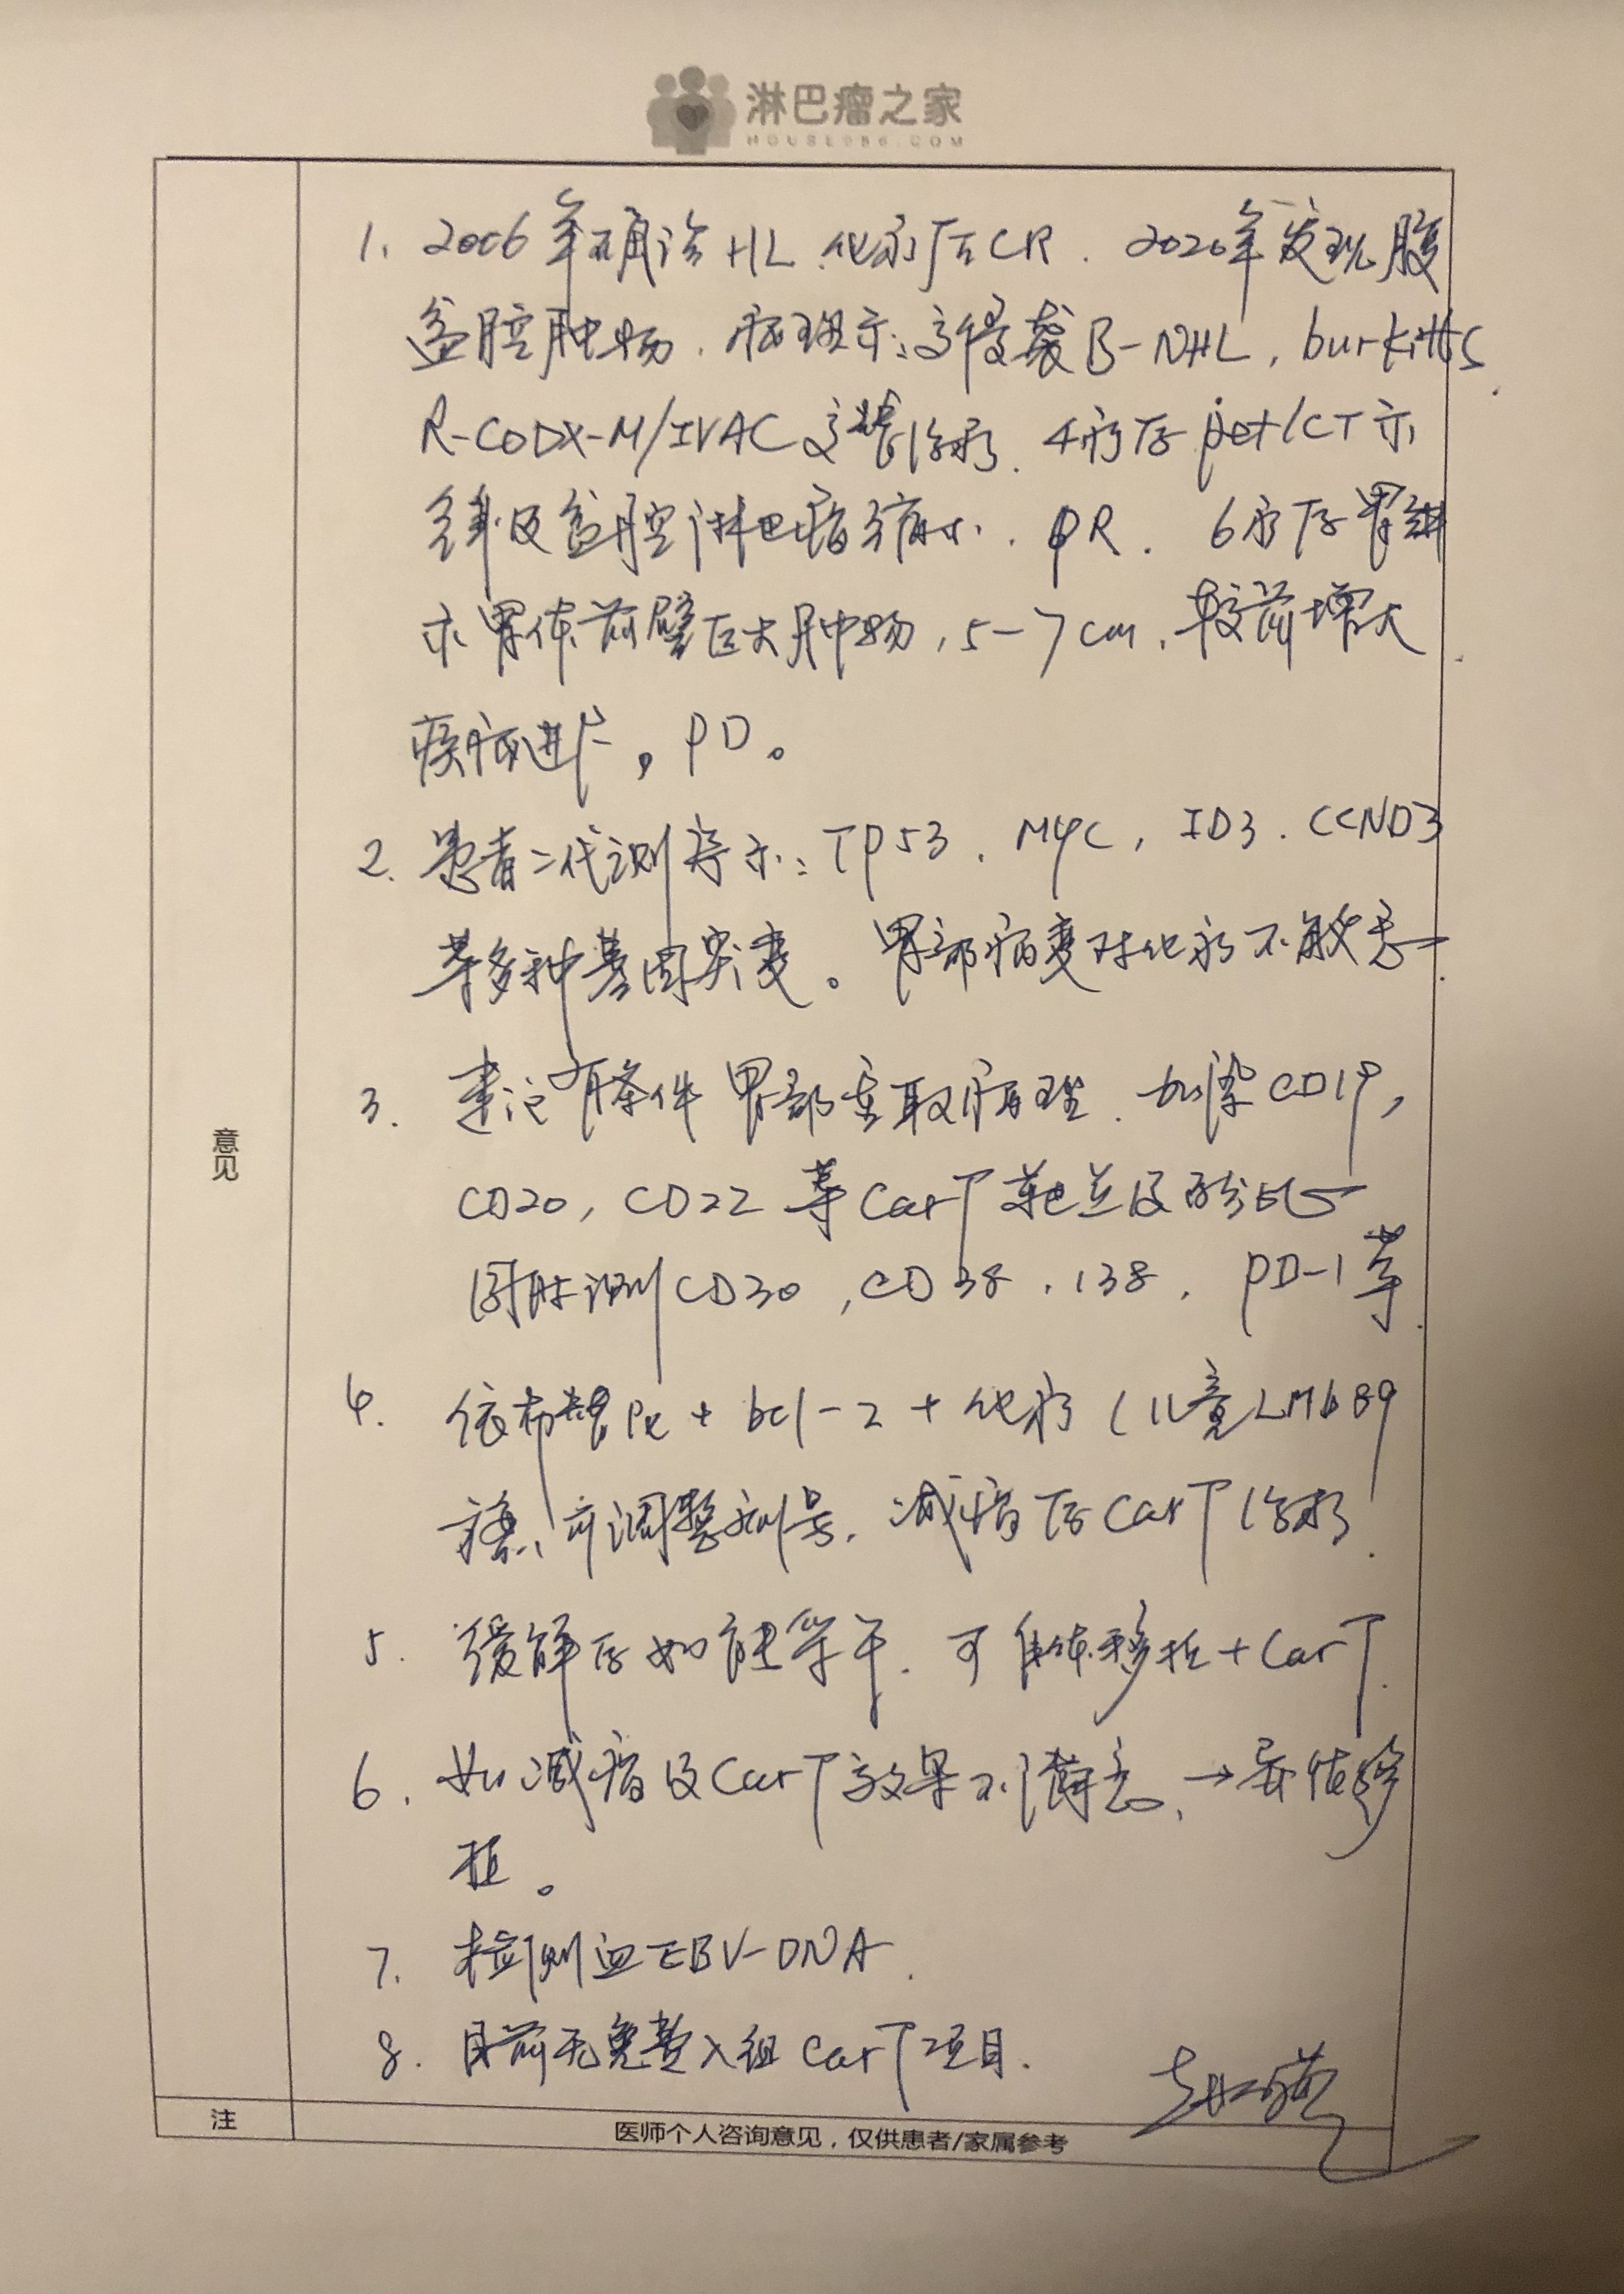 淋巴瘤之家
HOUSE086.COM
意见
1. 2006年确诊HL,化疗后CR. 2020年发现腹
盆腔肿物.病理示:高侵袭B-NHL, burkitts
R-CODX-M/IVAC交替治疗. 4疗后pet/CT示
及盆腔淋巴瘤缩小. PR. 6疗后胃镜
示胃体前壁巨大肿物, 5-7cm,较前增大
疾病进展, PD。
2. 患者二代测序示: TP53. MYC, ID3. CCND3
等多种基因突变。胃部病变对化疗不敏感
3. 建议有条件胃部重取病理.加染CD19,
CD20, CD22等CarT靶点及百分比
同时测CD30, CD38. 138. PD-1等
4. 依布替尼+bcl-2+化疗(儿童LMB89
方案,可调整剂量.减瘤后CarT治疗.
5. 缓解后如能等干.可自体移植+CarT.
6. 如减瘤及CarT效果不满意,→异体移
植。
7. 检测血EBV-DNA.
8. 目前无免费入组CarT项目.
注
医师个人咨询意见,仅供患者/家属参考